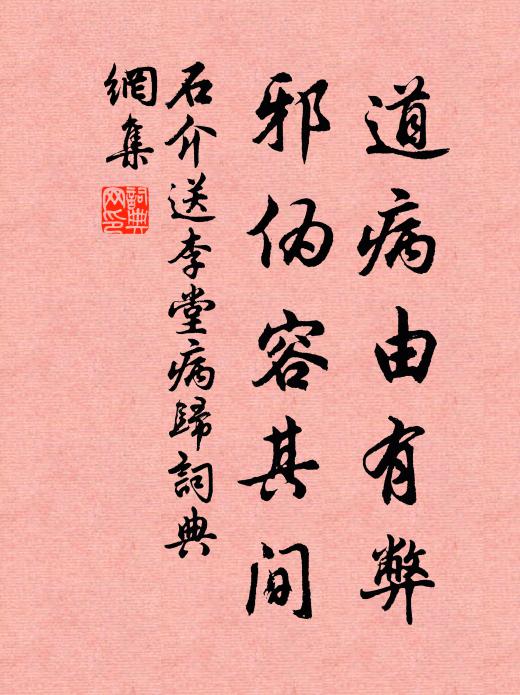 道病由有弊
邪伪容其间
石介送李堂病歸詞典
網集
詞典網印